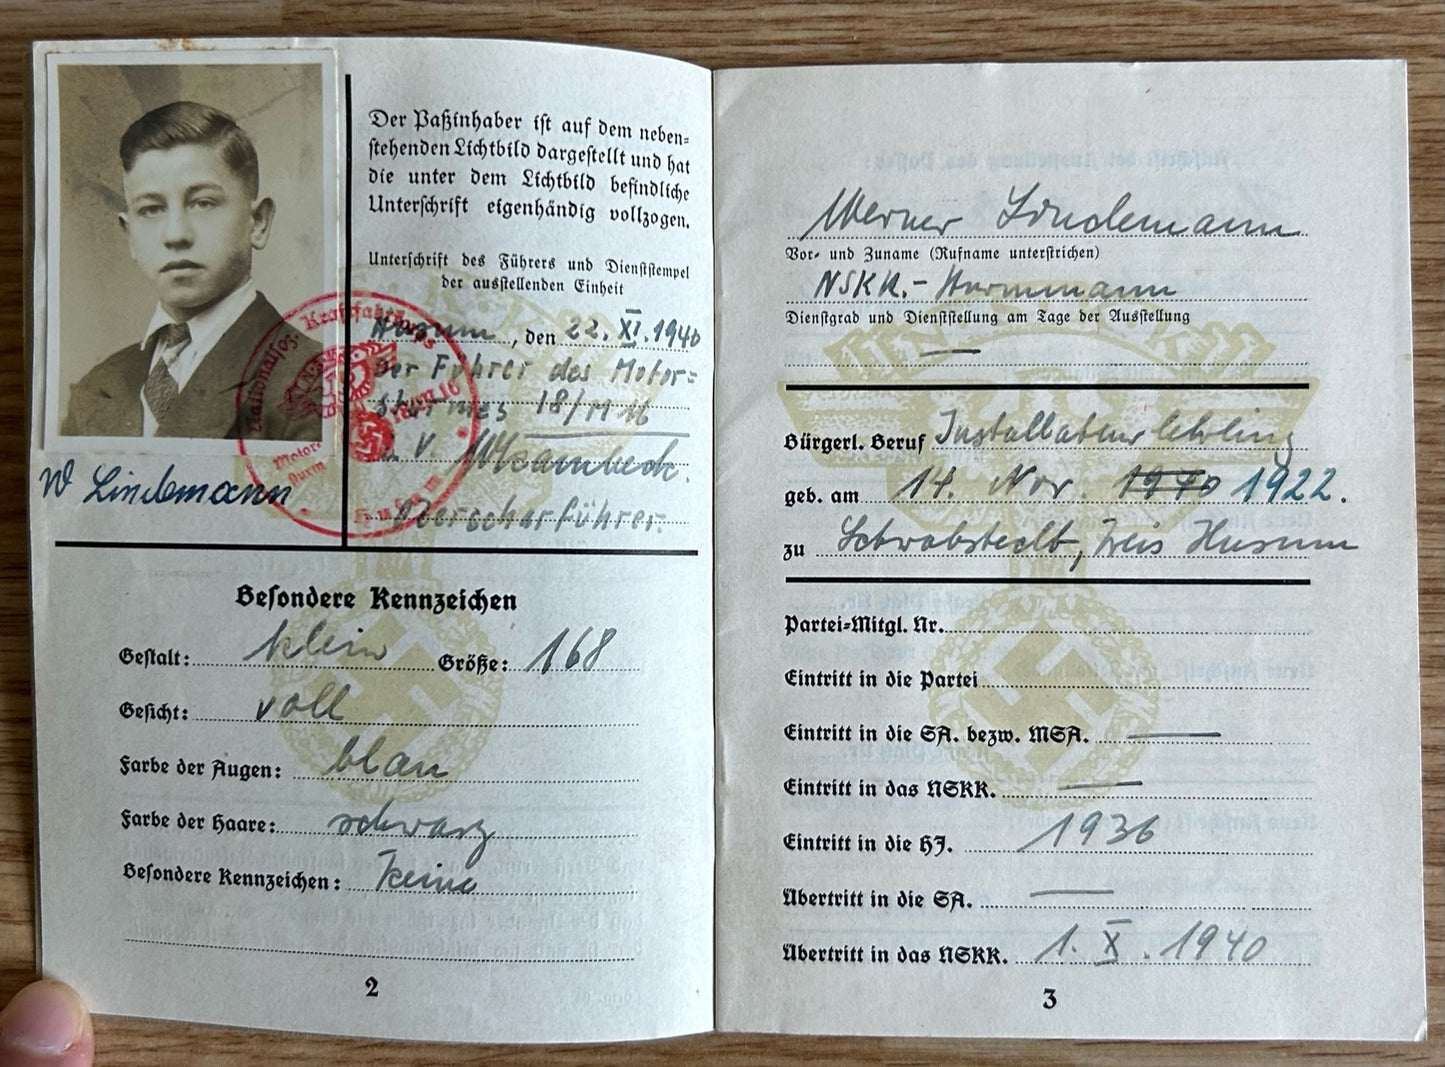 Der Paßinhaber ist auf dem neben=
stehenden Lichtbild dargestellt und hat
die unter dem Lichtbild befindliche
Unterschrift eigenhändig vollzogen.
Unterschrift des Führers und Dienststempel
der ausstellenden Einheit
Husum, den 22. XI. 1940
Der Führer des Motor=
sturmes 18/M 16
Oberscharführer.
W Lindemann
Besondere Kennzeichen
Gestalt: klein Größe: 168
Gesicht: voll
Farbe der Augen: blau
Farbe der Haare: schwarz
Besondere Kennzeichen: Keine
2
Werner Lindemann
Vor- und Zuname (Rufname unterstrichen)
NSKK.-Sturmmann
Dienstgrad und Dienststellung am Tage der Ausstellung
Bürgerl. Beruf Installateurlehrling
geb. am 14. Nov. 1940 1922.
zu Schwabstedt, Kreis Husum
Partei=Mitgl. Nr.
Eintritt in die Partei
Eintritt in die SA. bezw. MSA. —
Eintritt in das NSKK. —
Eintritt in die HJ. 1936
Übertritt in die SA. —
Übertritt in das NSKK. 1. X. 1940
3